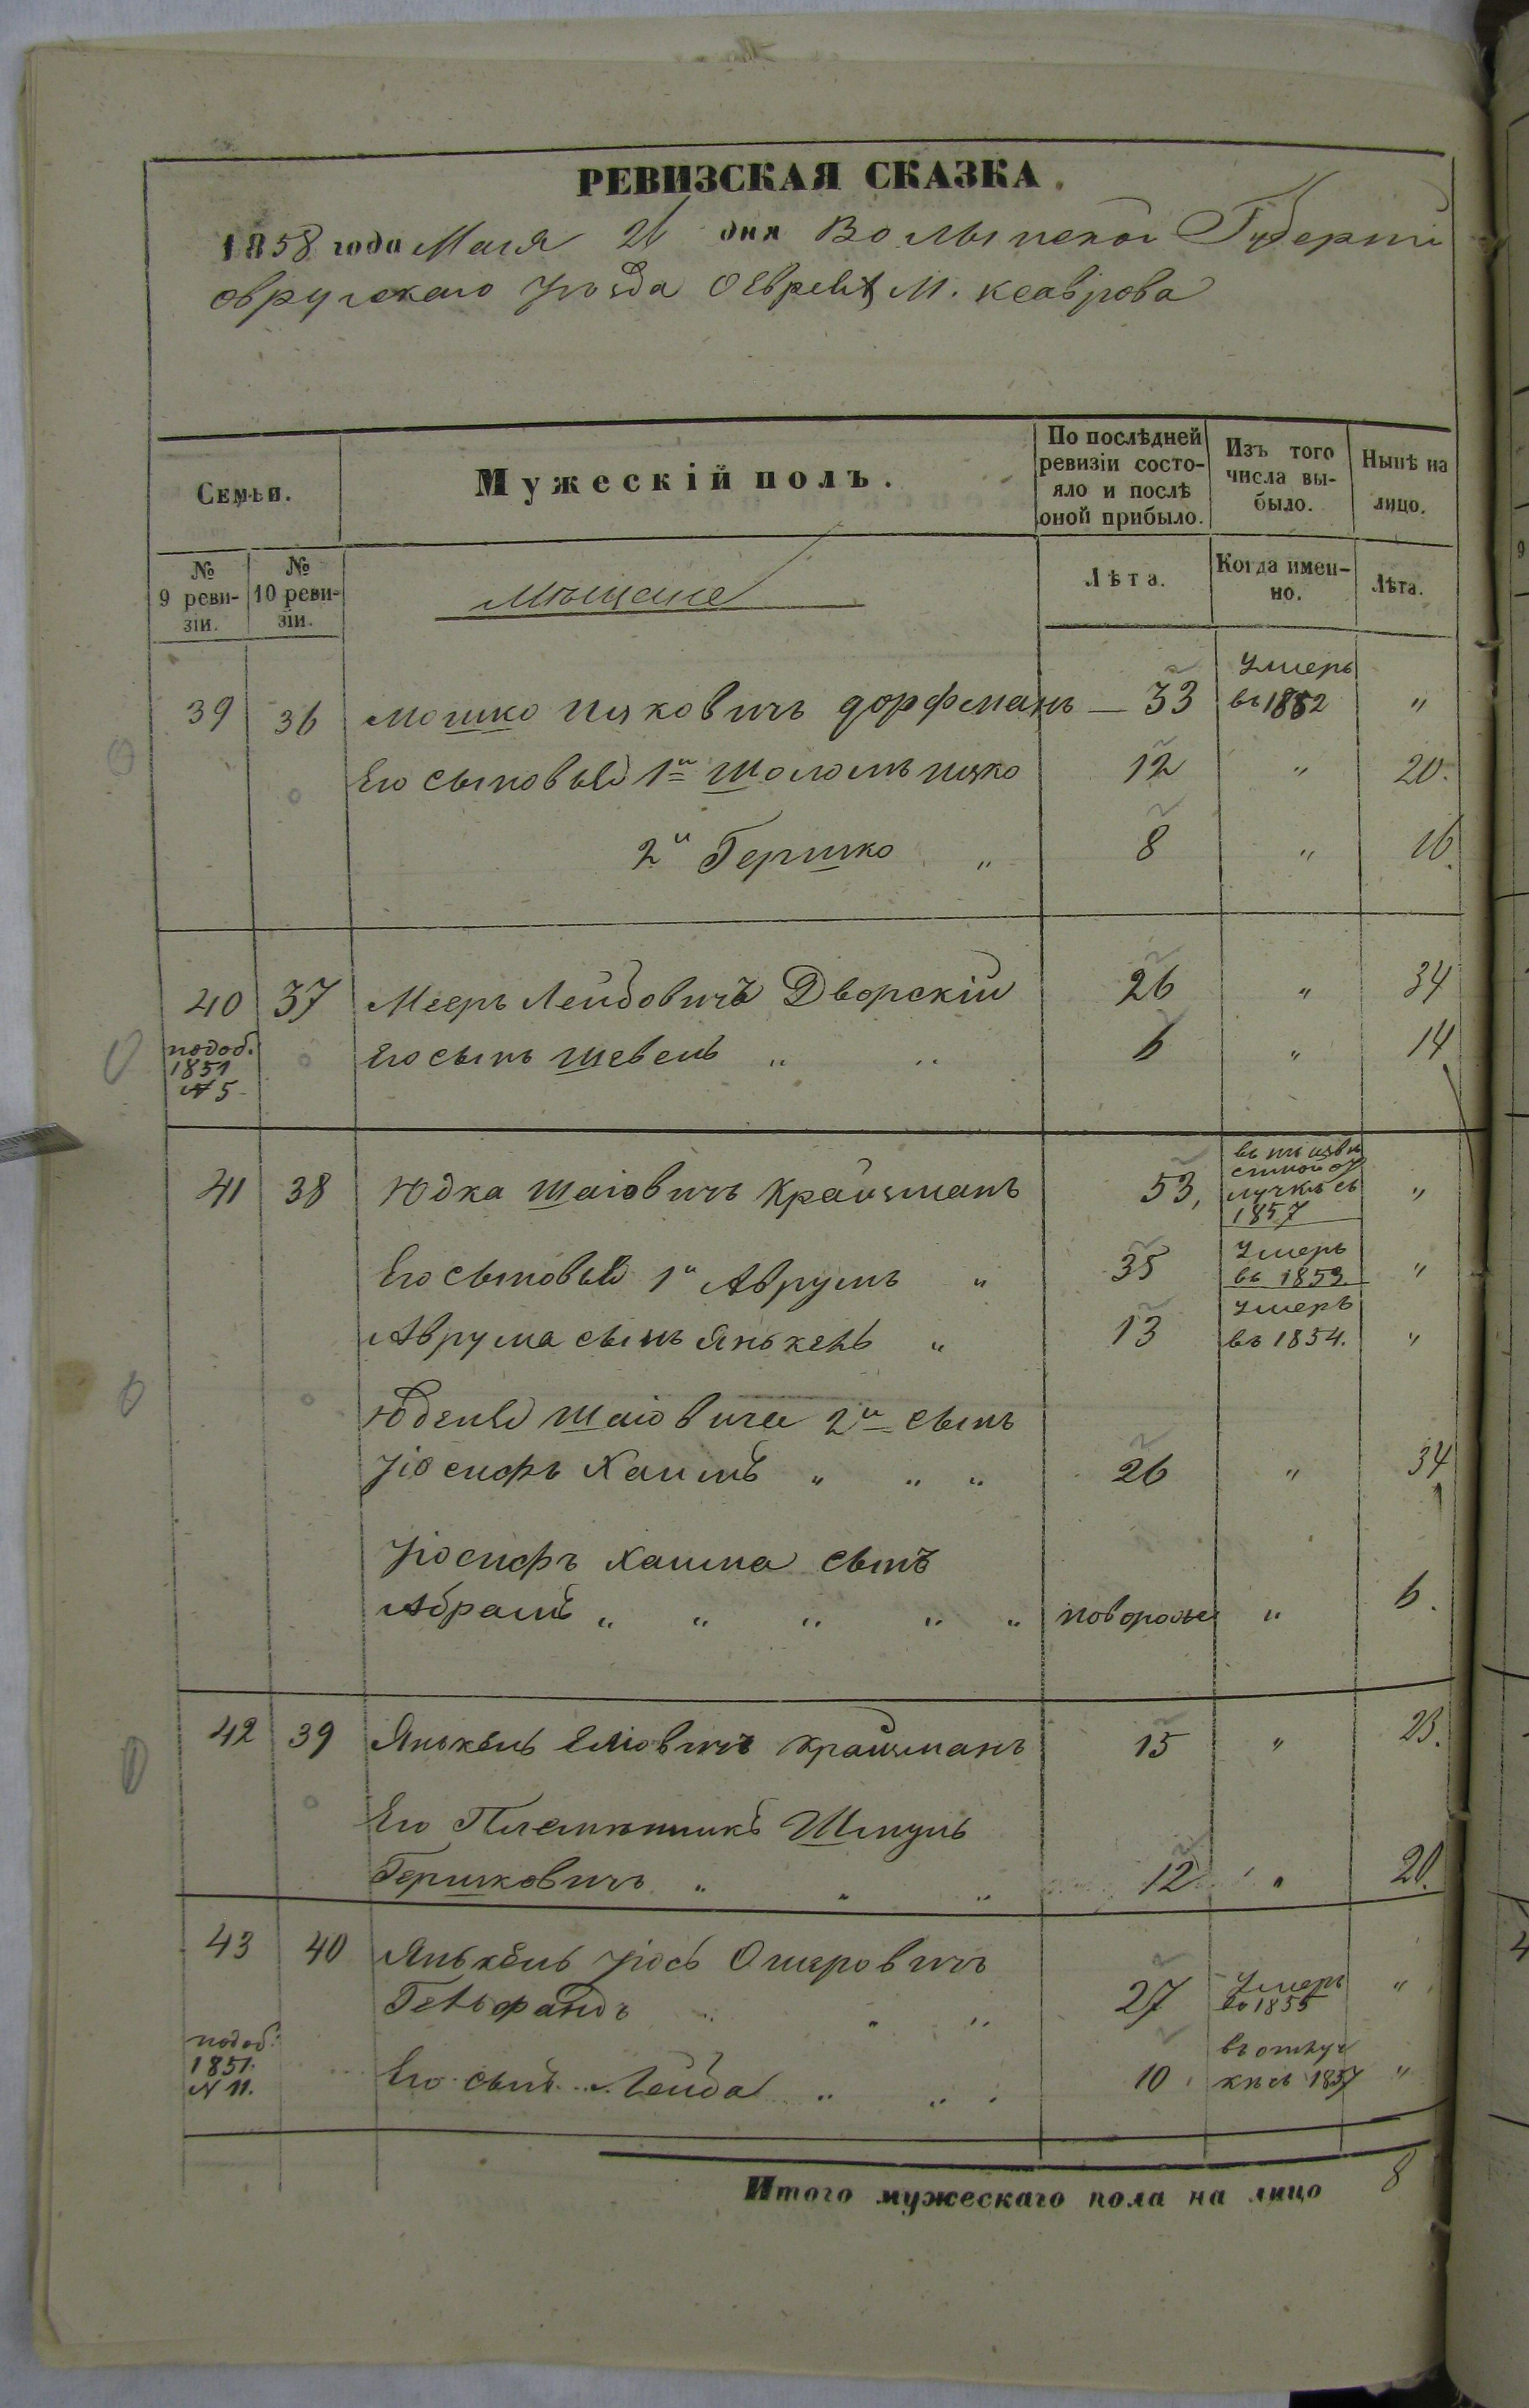 РЕВИЗСКАЯ СКАЗКА.
1858 года Маія 26 дня Волынской Губерніи
овручскаго уѣзда О Евреяхъ М. Ксаврова
Семьи.
Мужескій полъ.
По послѣдней ревизіи состояло и послѣ оной прибыло.
Изъ того числа выбыло.
Нынѣ на лицо.
№ 9 ревизіи.
№ 10 ревизіи.
Мѣщане
Лѣта.
Когда именно.
Лѣта.
39 36 Мошко Ицковичъ дорфманъ — 33 Умеръ въ 1852 "
Его сыновья 1й Шоломъ ицко 12 " 20.
2й Гершко " 8 " 16.
40 37 Мееръ Лейбовичъ Дворскій 26 " 34
подоб. 1851 № 5 Его сынъ шевель " " 6 " 14
41 38 Юдка шаіовичъ Крайзманъ 53, въ неизвѣстной отлучкѣ съ 1857 "
Его сыновья 1й Аврумъ " 35 Умеръ въ 1853. "
Аврума сынъ Янькель " 13 Умеръ въ 1854. "
Юдки шаіовича 2й сынъ
Іосифъ Хаимъ " " " 26 " 34
Іосифъ Хаима сынъ
Абрамъ " " " " " новорож " 6.
42 39 Янькель Еліовичъ Крайзманъ 15 " 23.
Его Племянникъ Шмуль
Гершковичъ " " " 12 " 20.
43 40 Янькель Іось Ошеровичъ
Гельфандъ " " " 27 Умеръ въ 1855 "
подоб. 1851. № 11. Его сынъ Лейба " " " 10 въ отлучкѣ съ 1857 "
Итого мужескаго пола на лицо 8